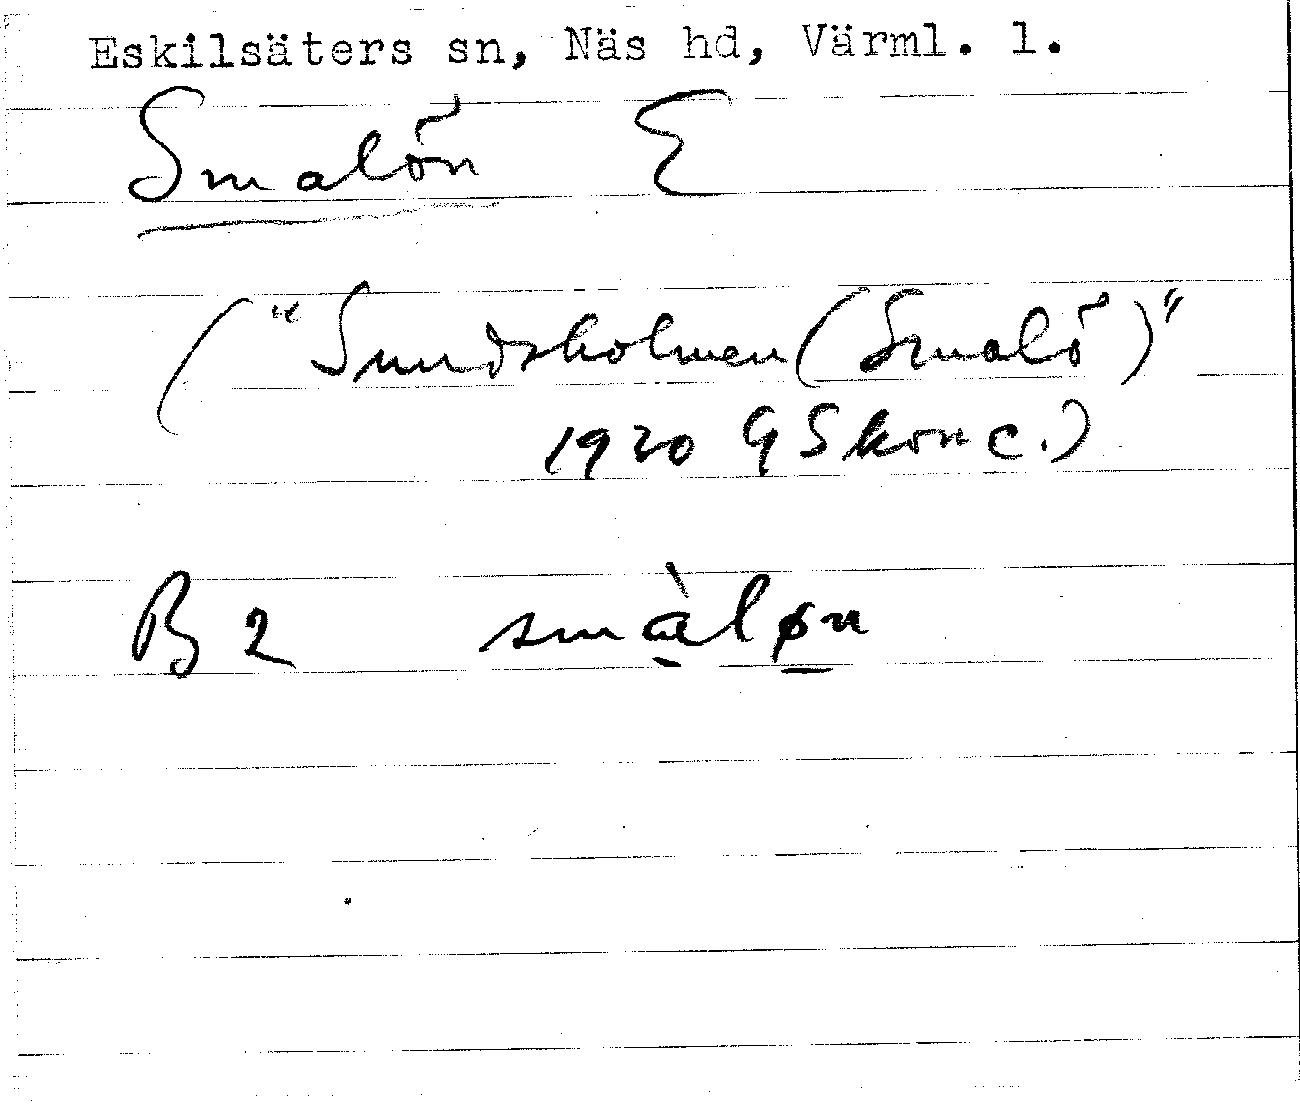 Eskilsäters sn, Näs hd, Värml. l.
Smalön E
("Sundsholmen (Smalö)"
1920 GS konc.)
B 2 smàløn